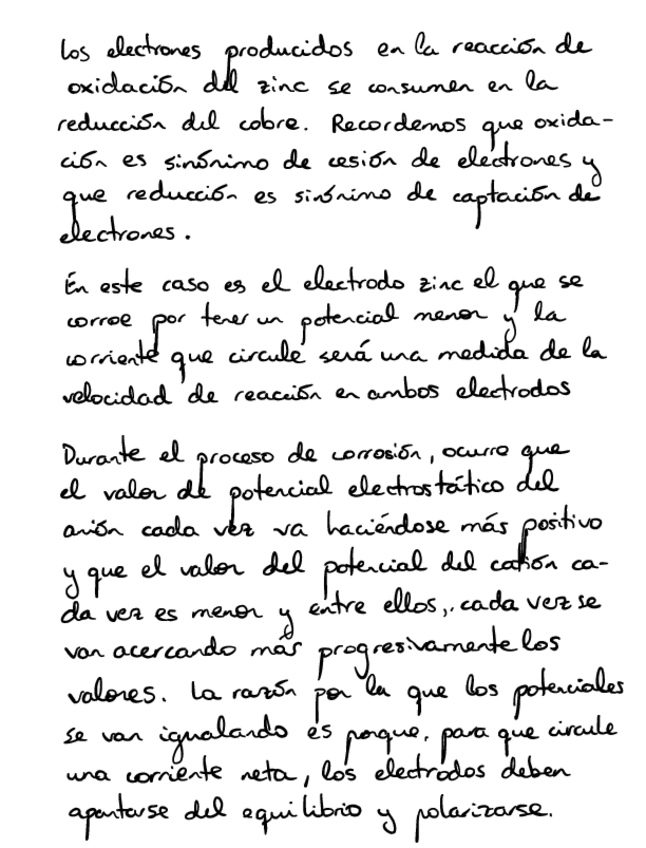 Los electrones producidos en la reacción de
oxidación del zinc se consumen en la
reducción del cobre. Recordemos que oxida-
ción es sinónimo de cesión de electrones y
que reducción es sinónimo de captación de
electrones.
En este caso es el electrodo zinc el que se
corroe por tener un potencial menor y la
corriente que circule será una medida de la
velocidad de reacción en ambos electrodos
Durante el proceso de corrosión, ocurre que
el valor de potencial electrostático del
anión cada vez va haciéndose más positivo
y que el valor del potencial del catión ca-
da vez es menor y entre ellos, cada vez se
van acercando más progresivamente los
valores. La razón por la que los potenciales
se van igualando es porque, para que circule
una corriente neta, los electrodos deben
apartarse del equilibrio y polarizarse.